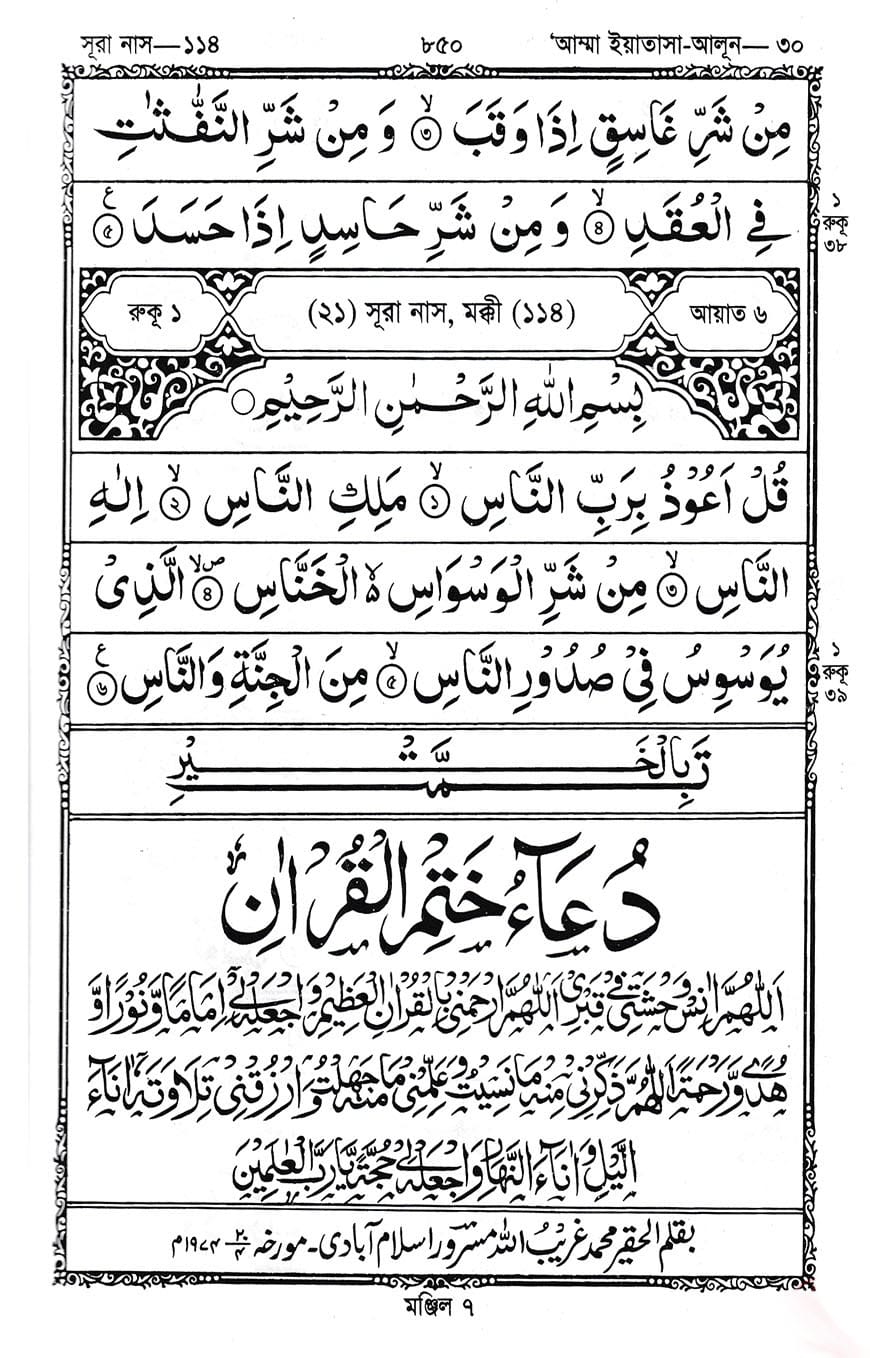 সূরা নাস—১১৪ ৮৫০ 'আম্মা ইয়াতাসা-আলূন— ৩০
مِنْ شَرِّ غَاسِقٍ اِذَا وَقَبَ ۙ﴿৩﴾ وَ مِنْ شَرِّ النَّفّٰثٰتِ
فِی الْعُقَدِ ۙ﴿৪﴾ وَ مِنْ شَرِّ حَاسِدٍ اِذَا حَسَدَ ﴿৫﴾ ع
১
রুকূ
৩৮
রুকূ ১ (২১) সূরা নাস, মক্কী (১১৪) আয়াত ৬
بِسْمِ اللهِ الرَّحْمٰنِ الرَّحِیْمِ ○
قُلْ اَعُوْذُ بِرَبِّ النَّاسِ ۙ﴿১﴾ مَلِكِ النَّاسِ ۙ﴿২﴾ اِلٰهِ
النَّاسِ ۙ﴿৩﴾ مِنْ شَرِّ الْوَسْوَاسِ ۙ۬ الْخَنَّاسِ ۪ۙ﴿৪﴾ الَّذِیْ
یُوَسْوِسُ فِیْ صُدُوْرِ النَّاسِ ۙ﴿৫﴾ مِنَ الْجِنَّةِ وَالنَّاسِ ﴿৬﴾ ع
১
রুকূ
৩৯
تَمَّتْ بِالْخَيْرِ
دُعَآءُ خَتْمِ الْقُرْاٰنِ
اَللّٰهُمَّ اٰنِسْ وَحْشَتِيْ فِيْ قَبْرِيْ اَللّٰهُمَّ ارْحَمْنِيْ بِالْقُرْاٰنِ الْعَظِيْمِ وَاجْعَلْهُ لِيْ اِمَامًا وَّنُوْرًا وَّ
هُدًى وَّرَحْمَةً اَللّٰهُمَّ ذَكِّرْنِيْ مِنْهُ مَا نَسِيْتُ وَعَلِّمْنِيْ مِنْهُ مَا جَهِلْتُ وَارْزُقْنِيْ تِلَاوَتَهٗ اٰنَآءَ
الَّيْلِ وَاٰنَآءَ النَّهَارِ وَاجْعَلْهُ لِيْ حُجَّةً يَّارَبَّ الْعٰلَمِيْنَ
بقلم الحقیر محمد غریب اللہ مسرور اسلام آبادی۔ مورخہ ۲۰/۴ ۱۹۷۴م
মঞ্জিল ৭